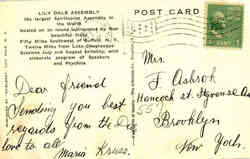 LILY DALE ASSEMBLY
the largest Spiritualist Assembly in
the World
located on an island surrounded by four
beautiful lakes
Fifty Miles Southwest of Buffalo, N. Y.
Twelve Miles from Lake Chautauqua
Sessions July and August annually, with
elaborate program of Speakers
and Psychics
POST CARD
Mrs.
F. Ashroh
Hancock st.
Brooklyn
New York.
Dear friend
Sending you best
regards from the
love to all
Maria